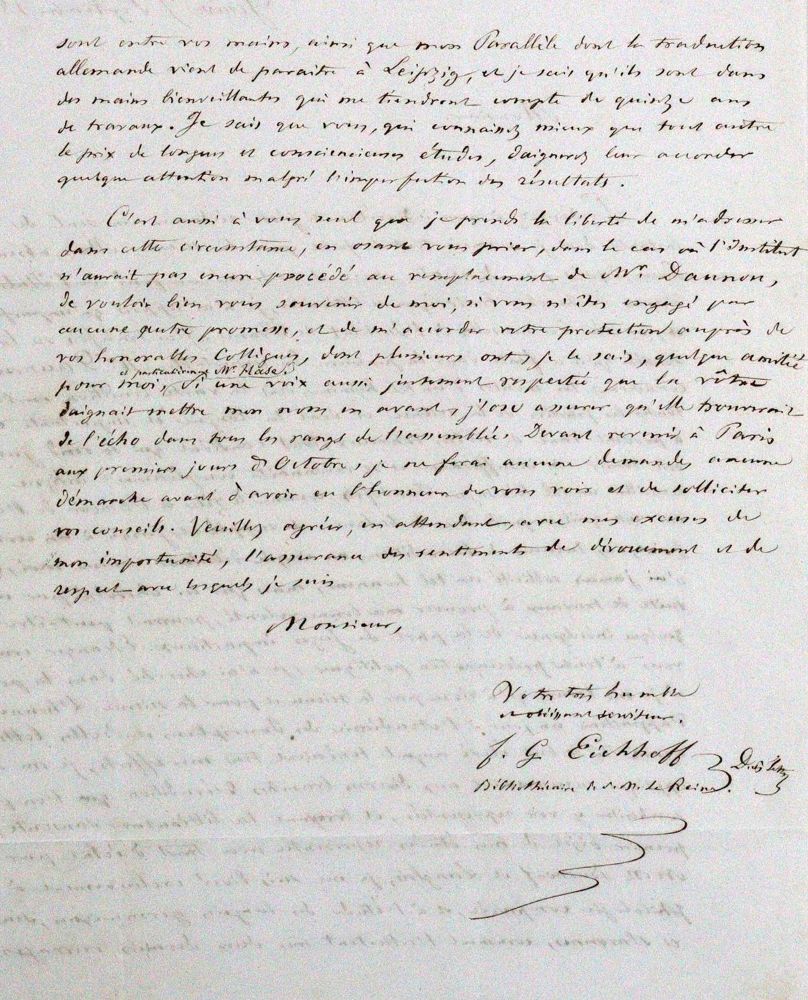 sont entre vos mains, ainsi que mon Parallèle dont la traduction
allemande vient de paraitre à Leipzig, et je sais qu'ils sont dans
des mains bienveillantes qui me tiendront compte de quinze ans
de travaux. Je sais que vous, qui connaissez mieux que tout autre
le prix de longues et consciencieuses études, daignerez leur accorder
quelque attention malgré l'imperfection des résultats.
C'est aussi à vous seul que je prends la liberté de m'adresser
dans cette circonstance, en osant vous prier, dans le cas où l'Institut
n'aurait pas encore procédé au remplacement de Mr. Daunou,
de vouloir bien vous souvenir de moi, si vous n'êtes engagé par
aucune autre promesse, et de m'accorder votre protection auprès de
vos honorables Collègues, dont plusieurs ont, je le sais, quelque amitié
et particulièrement Mr. Hase.
pour moi, Si une voix aussi justement respectée que la vôtre
daignait mettre mon nom en avant, j'ose assurer qu'elle trouverait
de l'écho dans tous les rangs de l'assemblée. Devant revenir à Paris
aux premiers jours d'Octobre, je ne ferai aucune demande, aucune
démarche avant d'avoir eu l'honneur de vous voir et de solliciter
vos conseils. Veuillez agréer, en attendant, avec mes excuses de
mon importunité, l'assurance des sentiments de dévouement et de
respect avec lesquels je suis
Monsieur,
Votre très humble
et obéissant serviteur.
f. G. Eichhoff
Bibliothécaire de S. M. la Reine.